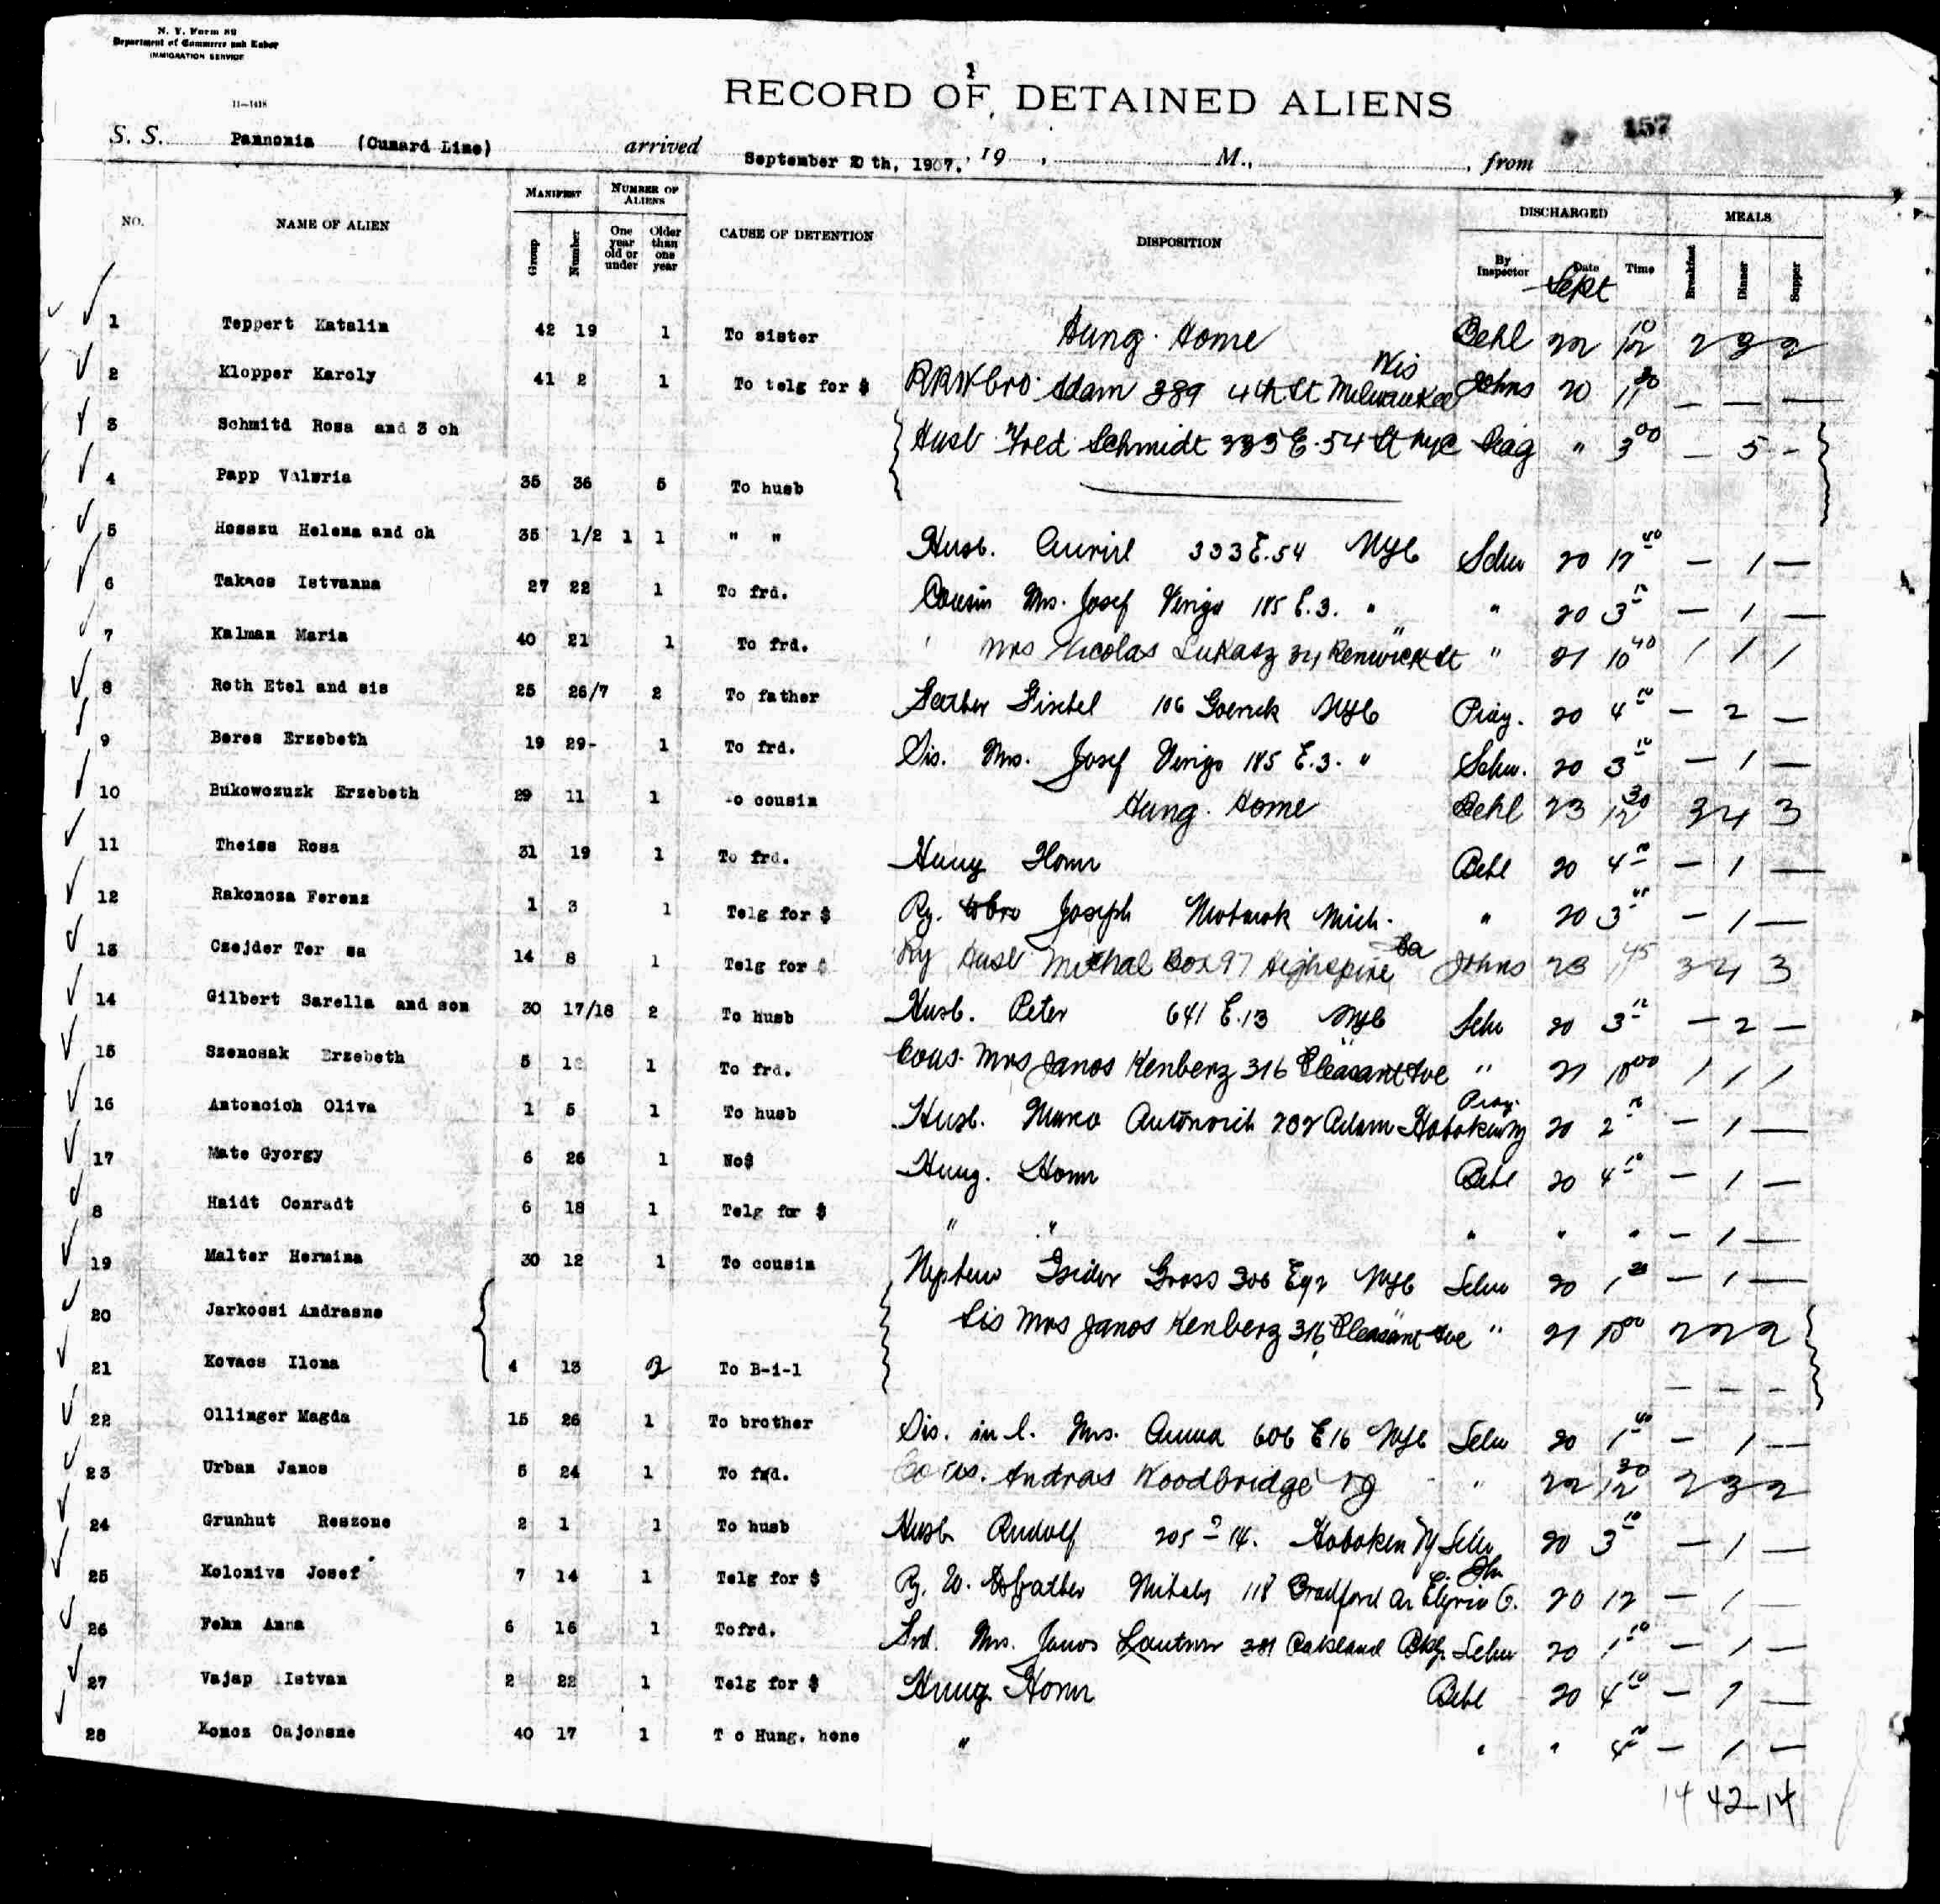 N. Y. Form 89
Department of Commerce and Labor
IMMIGRATION SERVICE
11—1418
1
RECORD OF DETAINED ALIENS
157
S. S. Pannonia (Cunard Line) arrived September 20th, 1907. 19 , M., , from
NO. NAME OF ALIEN MANIFEST Group Number NUMBER OF ALIENS One year old or under Older than one year CAUSE OF DETENTION DISPOSITION DISCHARGED By Inspector Date Time MEALS Breakfast Dinner Supper
Sept
1 Teppert Katalin 42 19 1 To sister Hung. Home Behl 22 12 10 2 3 2
2 Klopper Karoly 41 2 1 To telg for $ RRW bro. Adam 389 4th St Milwaukee Wis Johns 20 11 30 — — —
3 Schmitd Rosa and 3 ch Husb Fred Schmidt 333 E. 54 St NYC " 3 00 — 5 -
4 Papp Valeria 35 36 5 To husb
5 Hosszu Helena and ch 35 1/2 1 1 " " Husb. 333 E. 54 NYC Schw 20 12 40 — 1 —
6 Takacs Istvanna 27 22 1 To frd. Cousin Mrs. Josef Verigo 185 E. 3. " " 20 3 10 — 1 —
7 Kalman Maria 40 21 1 To frd. ' Mrs Nicolas Lukasz 34 Renwick St " 21 10 40 1 1 1
8 Roth Etel and sis 25 26/7 2 To father Father Fischel 106 Goerick NYC Pray. 20 4 10 — 2 —
9 Beres Erzebeth 19 29- 1 To frd. Sis. Mrs. Josef Verigo 185 E. 3. " Schw. 20 3 10 — 1 —
10 Bukowozuzk Erzebeth 29 11 1 -o cousin Hung. Home Behl 23 12 30 3 4 3
11 Theiss Rosa 31 19 1 To frd. Hung Home Behl 20 4 10 — 1 —
12 Rakoncza Ferenz 1 3 1 Telg for $ Ry. to bro Joseph Mich. " 20 3 45 — 1 —
13 Czejder Ter sa 14 8 1 Telg for $ Ry Husb Michal Box 97 Highspire Pa Johns 23 1 45 3 4 3
14 Gilbert Sarella and son 30 17/18 2 To husb Husb. Peter 641 E. 13 NYC Schw 20 3 12 — 2 —
15 Szencsak Erzebeth 5 1 1 To frd. Cous. Mrs Janos Kenberz 316 Pleasant Ave " 21 10 00 1 1 1
16 Antoncich Oliva 1 5 1 To husb Husb. Marco Antonovich 202 Adam Hoboken NJ Pray. 20 2 10 — 1 —
17 Mate Gyorgy 6 26 1 No$ Hung. Home Behl 20 4 10 — 1 —
8 Haidt Conradt 6 18 1 Telg for $ " " " " " — 1 —
19 Malter Hermina 30 12 1 To cousin Nephew Isidor Gross 306 E 92 NYC Schw 20 1 20 — 1 —
20 Jarkocsi Andrasne Sis Mrs Janos Kenberz 316 Pleasant Ave " 21 10 00 2 2 2
21 Kovacs Ilona 4 13 2 To B-i-l - - -
22 Ollinger Magda 15 26 1 To brother Sis. in l. Mrs. Anna 606 E 16 NYC Schw 20 1 40 — 1 —
23 Urban Janos 5 24 1 To frd. Cous. Andras Woodbridge NJ " 22 12 30 2 3 2
24 Grunhut Reszone 2 1 1 To husb Husb Rudolf 205 - 14. Hoboken NJ Schw 20 3 10 — 1 —
25 Kolonivs Josef 7 14 1 Telg for $ Ry. W. to father Mihaly 118 Bradford Av Elyria O. 20 12 — 1 —
26 Fehn Anna 6 16 1 Tofrd. Frd. Mrs. Janos Lautner 381 Oakland Schw 20 1 10 — 1 —
27 Vajap Istvan 2 22 1 Telg for $ Hung. Home Behl 20 4 10 — 1 —
28 Koncz Oajonsne 40 17 1 T o Hung. hone " " " 4 10 — 1 —
14 42-14